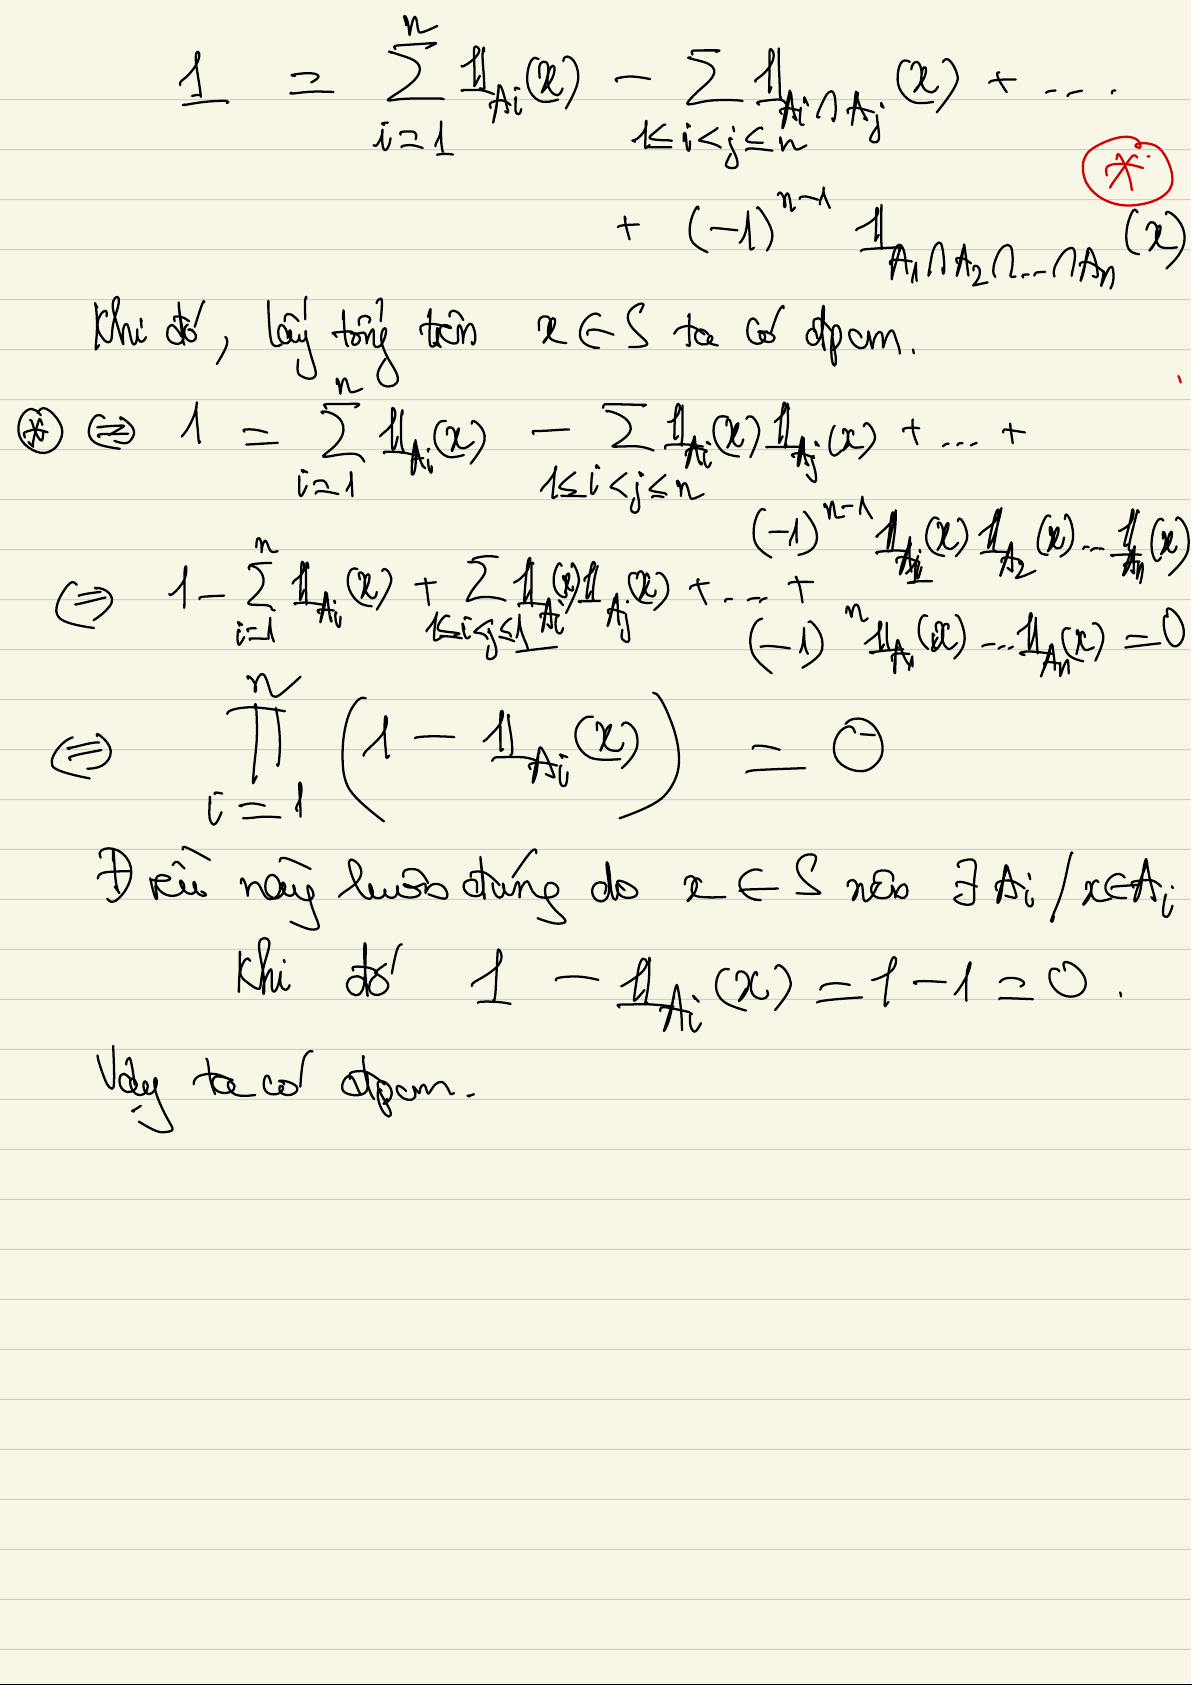 1 = \sum_{i=1}^{n} 𝟙_{A_i}(x) - \sum_{1≤i<j≤n} 𝟙_{A_i∩A_j}(x) + ....
(*)
+ (-1)^{n-1} 𝟙_{A_1∩A_2∩...∩A_n}(x)
Khi đó, lấy tổng trên x ∈ S ta có đpcm.
(*) ⇔ 1 = \sum_{i=1}^{n} 𝟙_{A_i}(x) - \sum_{1≤i<j≤n} 𝟙_{A_i}(x) 𝟙_{A_j}(x) + ... +
(-1)^{n-1} 𝟙_{A_1}(x) 𝟙_{A_2}(x) ... 𝟙_{A_n}(x)
⇔ 1 - \sum_{i=1}^{n} 𝟙_{A_i}(x) + \sum_{1≤i<j≤1} 𝟙_{A_i}(x) 𝟙_{A_j}(x) + ... +
(-1)^n 𝟙_{A_1}(x) ... 𝟙_{A_n}(x) = 0
⇔ \prod_{i=1}^{n} (1 - 𝟙_{A_i}(x)) = 0
Điều này luôn đúng do x ∈ S nên ∃ A_i / x ∈ A_i
Khi đó 1 - 𝟙_{A_i}(x) = 1 - 1 = 0.
Vậy ta có đpcm.